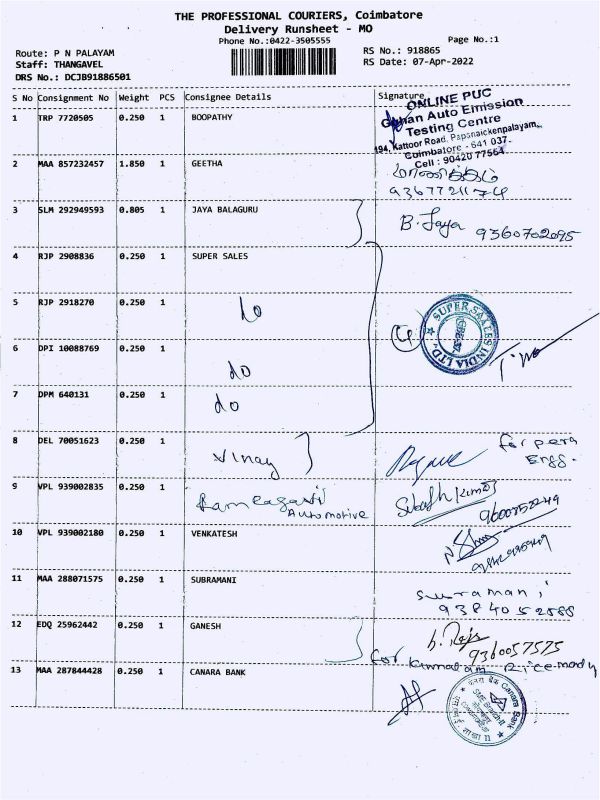 THE PROFESSIONAL COURIERS, Coimbatore
Delivery Runsheet - MO
Phone No.:0422-3505555
Page No.:1
Route: P N PALAYAM
Staff: THANGAVEL
DRS No.: DCJB91886501
RS No.: 918865
RS Date: 07-Apr-2022
S No Consignment No Weight PCS Consignee Details Signature
ONLINE PUC
Auto Emission
Testing Centre
194, Kattoor Road, Papanaickenpalayam,
Coimbatore - 641 037.
Cell : 90420 77564
1 TRP 7720505 0.250 1 BOOPATHY
2 MAA 857232457 1.850 1 GEETHA
9367721174
3 SLM 292949593 0.805 1 JAYA BALAGURU
B. Jaya 9360702095
4 RJP 2908836 0.250 1 SUPER SALES
5 RJP 2918270 0.250 1 do
4 SUPER SALES INDIA LTD.
6 DPI 10088769 0.250 1 do
7 DPM 640131 0.250 1 do
8 DEL 70051623 0.250 1 Vinay
for pera
Engg.
9 VPL 939002835 0.250 1
Automotive
10 VPL 939002180 0.250 1 VENKATESH
11 MAA 288071575 0.250 1 SUBRAMANI
12 EDQ 25962442 0.250 1 GANESH
9360057575
for
13 MAA 287844428 0.250 1 CANARA BANK
Canara Bank